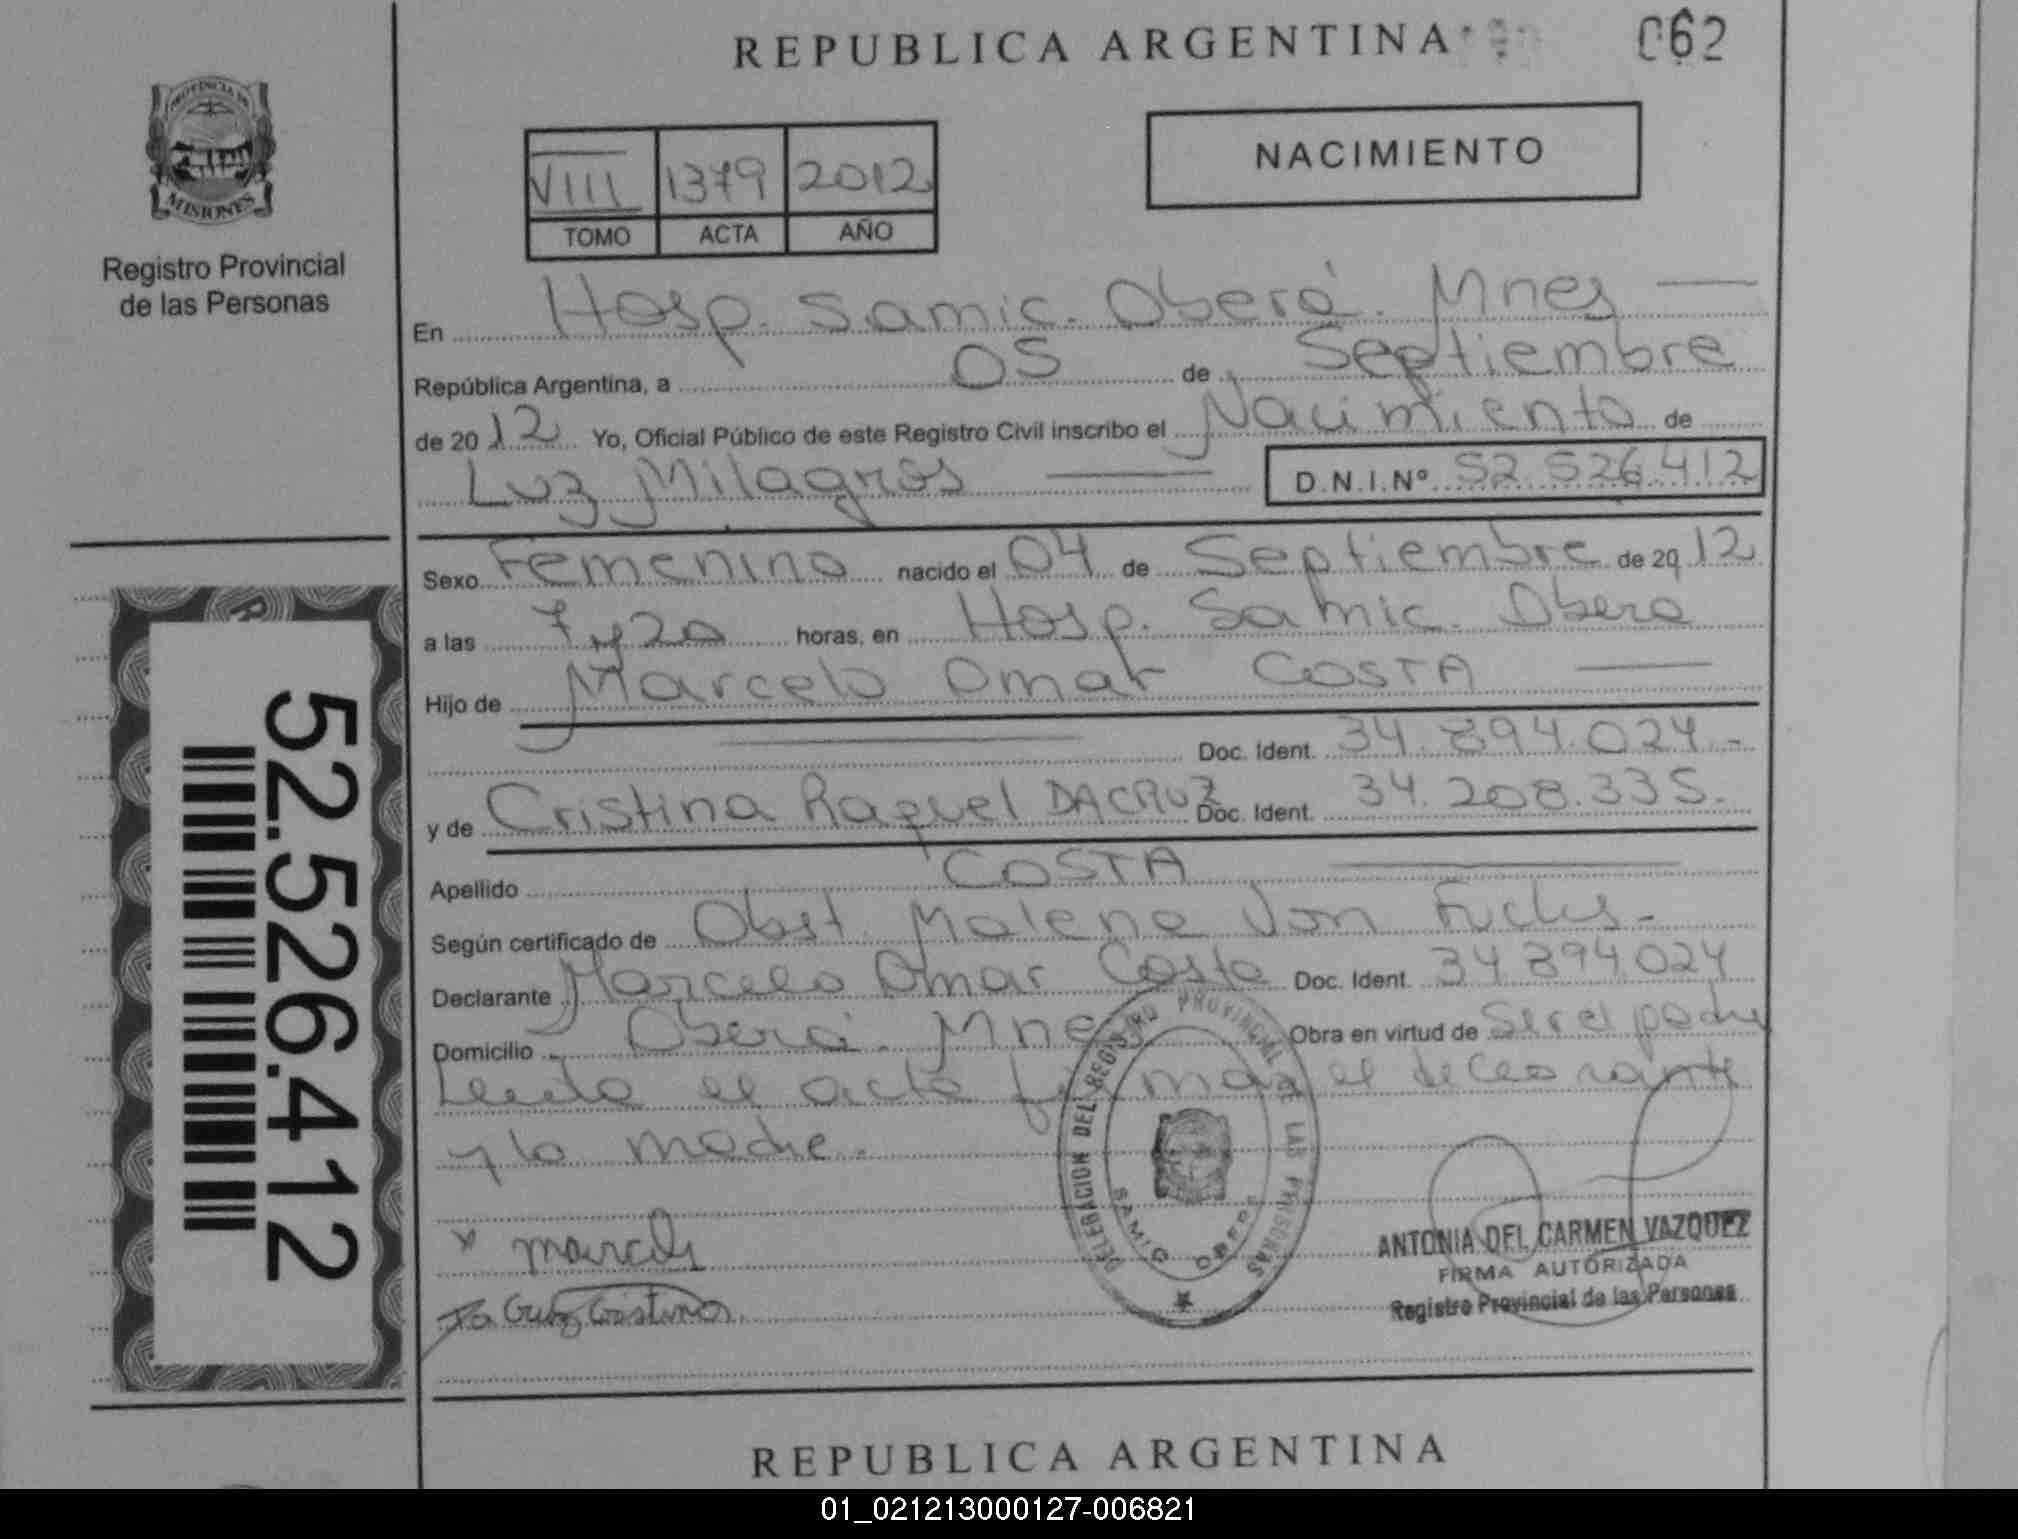 REPUBLICA ARGENTINA
062
PROVINCIA DE
MISIONES
Registro Provincial
de las Personas
NACIMIENTO
VIII 1379 2012
TOMO ACTA AÑO
En Hosp. Samic. Oberá. Mnes
República Argentina, a 05 de Septiembre
de 2012 Yo, Oficial Público de este Registro Civil inscribo el Nacimiento de
Luz Milagros D.N.I.Nº 52.526.412
Sexo Femenino nacido el 04 de Septiembre de 2012
a las 7 y 20 horas, en Hosp. Samic. Obera
Hijo de Marcelo Omar COSTA
Doc. Ident. 34.894.024.-
y de Cristina Raquel DACRUZ Doc. Ident. 34.208.335.
Apellido COSTA
Según certificado de Obst. Malene Von Fuchs.-
Declarante Marcelo Omar Costa Doc. Ident. 34.894.024
Domicilio Oberá. Mnes Obra en virtud de Ser el padre
Leida el acta firman el declarante
y la madre.
52.526.412
DELEGACION DEL REGISTRO PROVINCIAL DE LAS PERSONAS
SAMIC OBERA
x
Da Cruz Cristina
ANTONIA DEL CARMEN VAZQUEZ
FIRMA AUTORIZADA
Registro Provincial de las Personas
REPUBLICA ARGENTINA
01_021213000127-006821